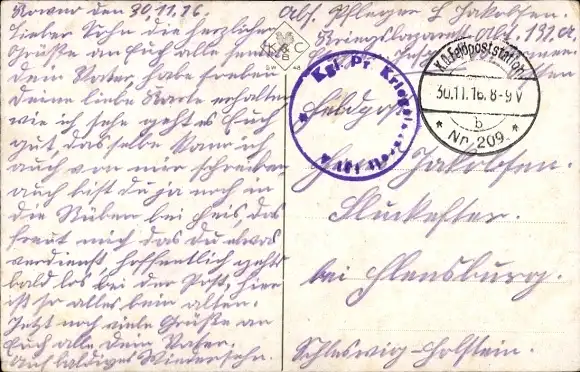 Kowno den 30.11.16.
Lieber Sohn die herzlichen
Grüße an Euch alle sendet
dein Vater, habe
Deine liebe Karte erhalten,
wie ich sehe geht es Euch
gut, dasselbe kann ich
auch von mir schreiben,
auch bist du ja noch in
die Rüben bei Heis, das
freut mich das du etwas
verdienst, hoffentlich gehts
bald los bei der Post, hier
ist so alles beim alten.
Jetzt noch viele Grüße an
Euch alle dein Vater.
Auf baldiges Wiedersehn.
K C
B
Abs. Pfleger L Jakobsen.
Kriegslazaret Abt. 131.
Kgl. Pr. Kriegs
K.D. Feldpoststation
30.11.16. 8-9 V
b
* Nr. 209. *
Feldpost
Jakobsen.
Kluckesfter.
bei Flensburg.
Schleswig-Holstein.